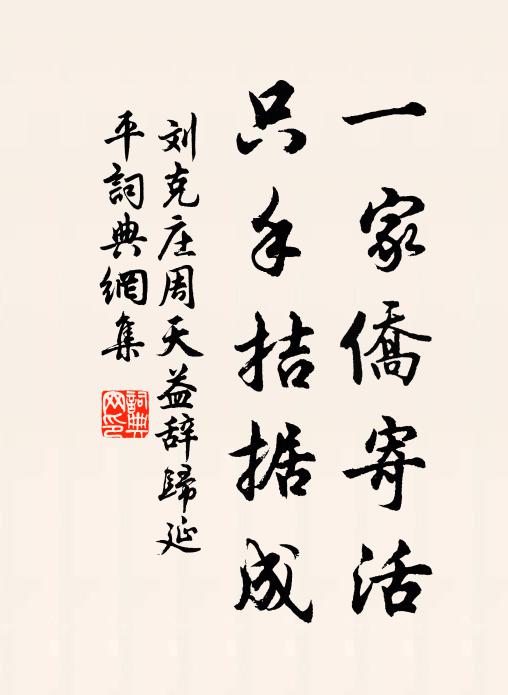 一家僑寄活
只手拮据成
刘克庄周天益辞歸延
平詞典網集
詞典
网印